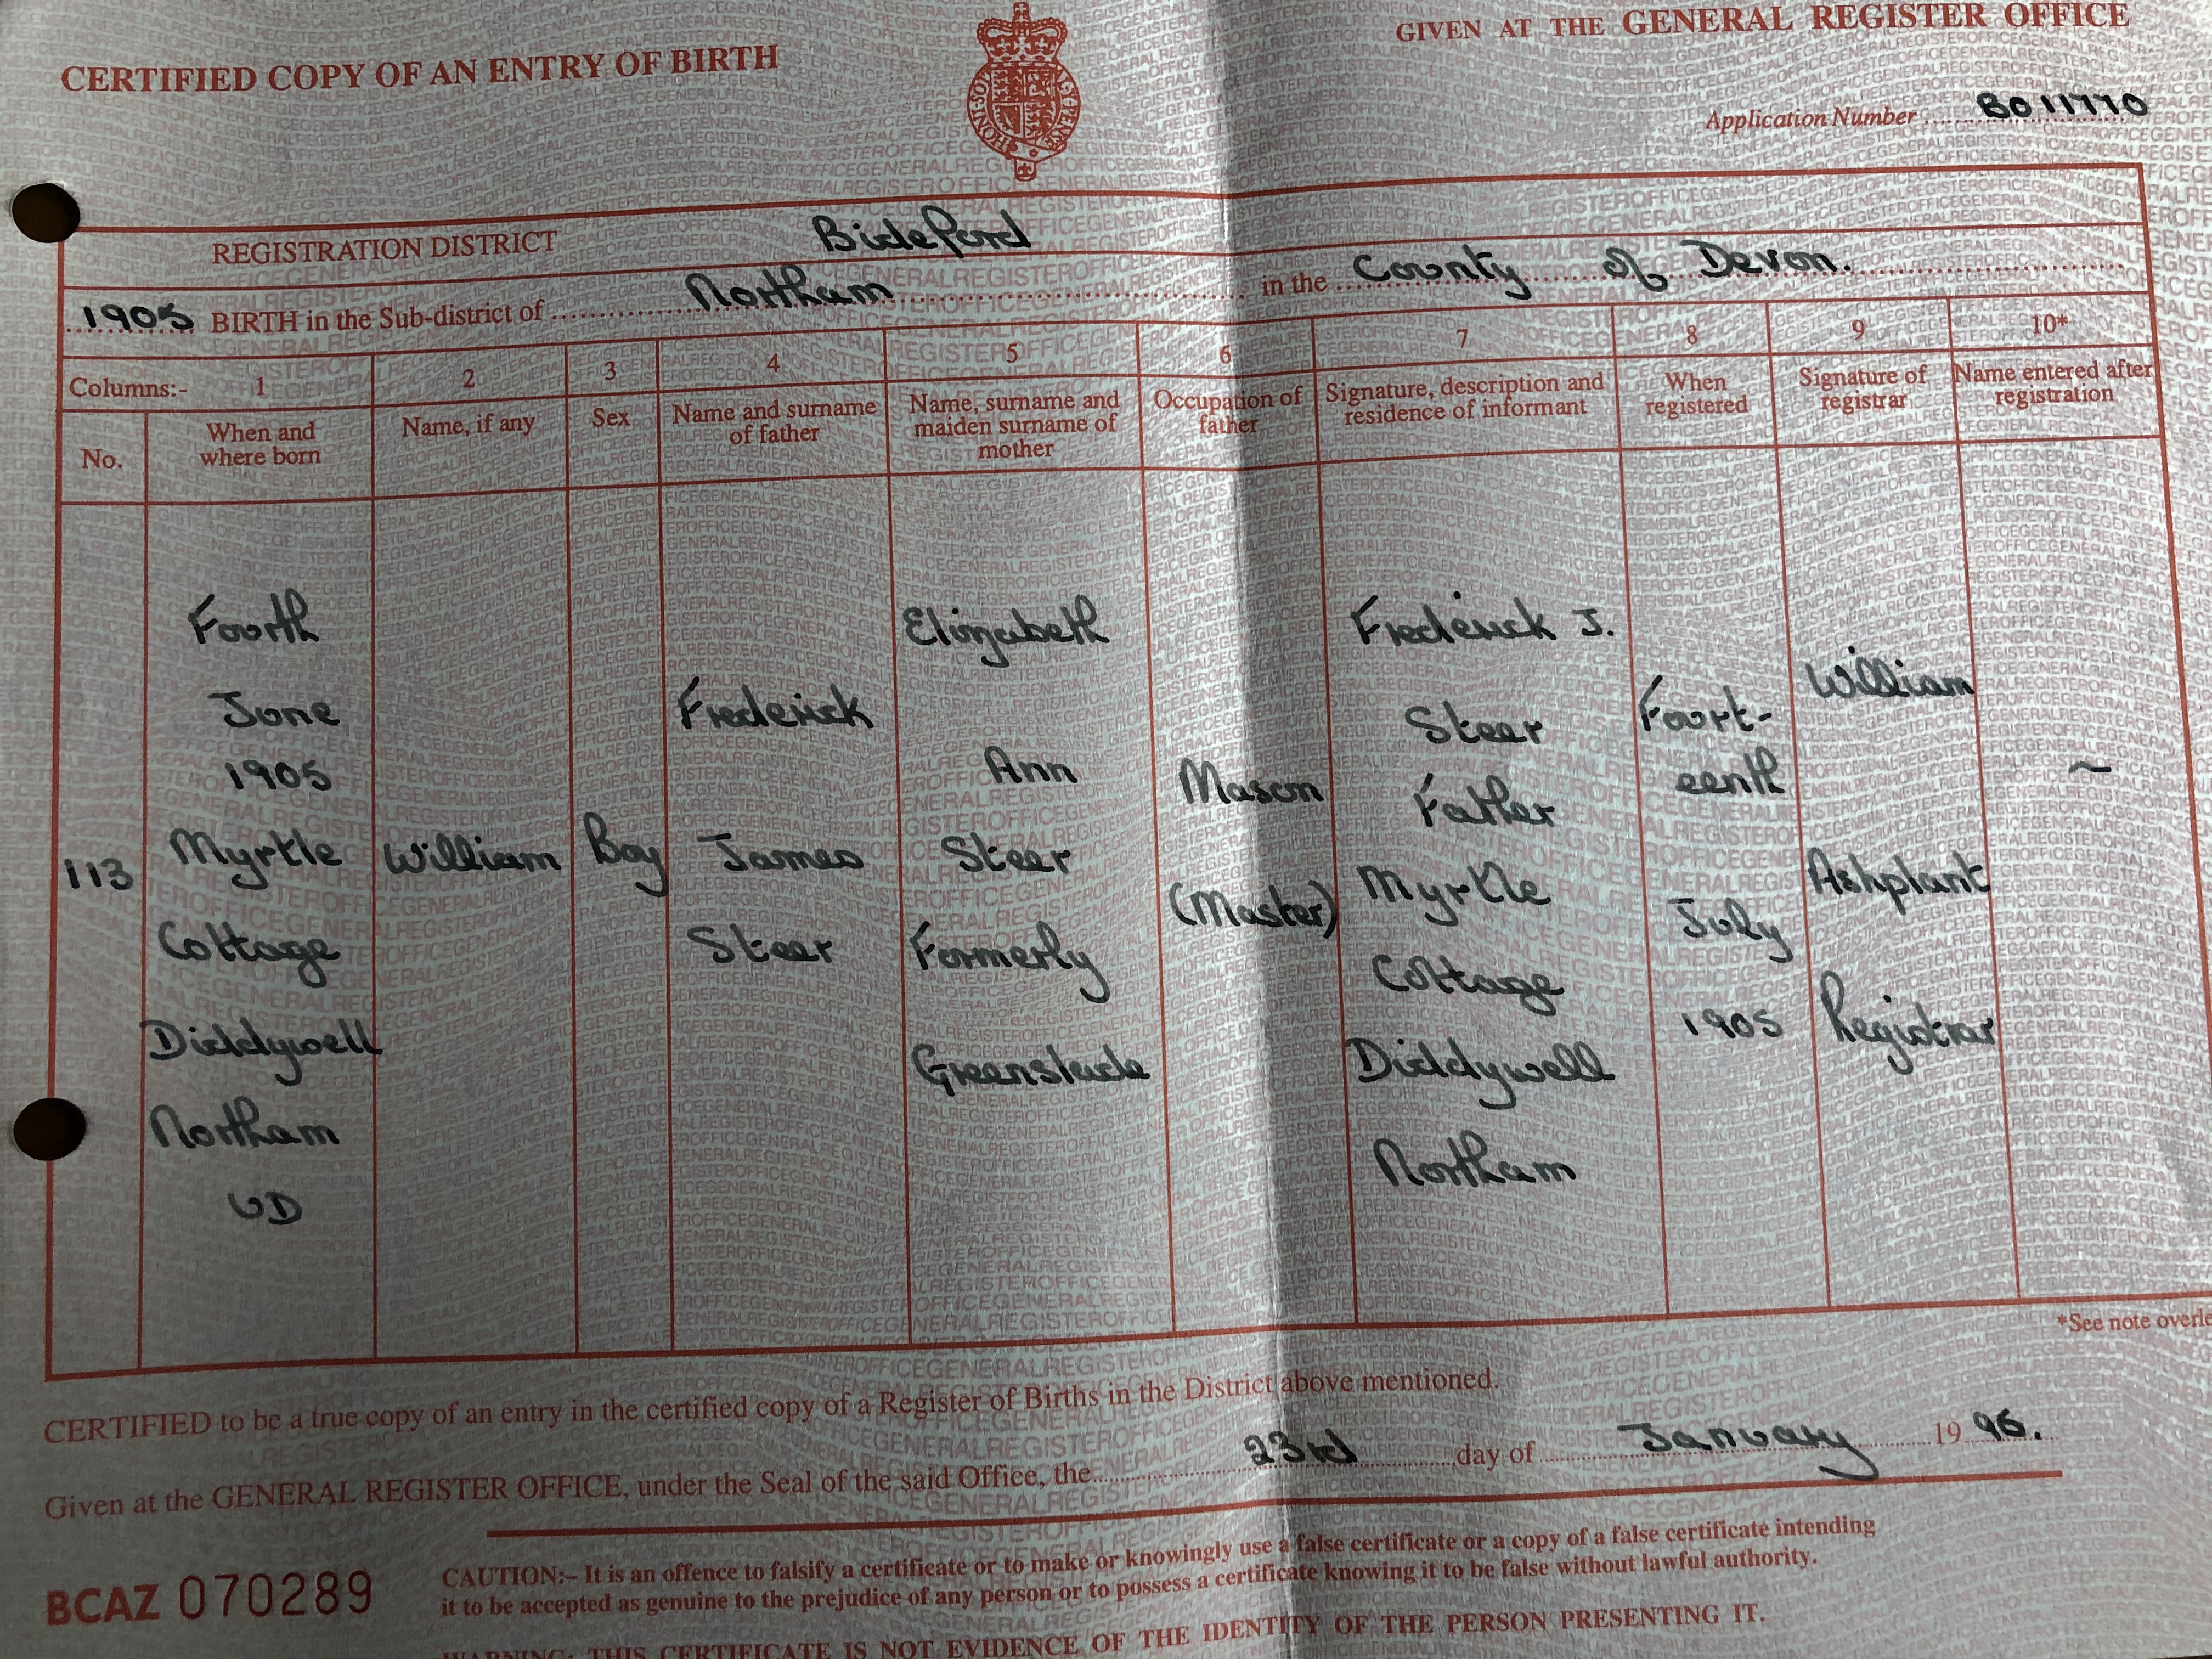 CERTIFIED COPY OF AN ENTRY OF BIRTH
GIVEN AT THE GENERAL REGISTER OFFICE
Application Number BO11770
REGISTRATION DISTRICT Bideford
1905 BIRTH in the Sub-district of Northam in the County of Devon.
Columns:- 1 2 3 4 5 6 7 8 9 10*
No.
When and
where born
Name, if any
Sex
Name and surname
of father
Name, surname and
maiden surname of
mother
Occupation of
father
Signature, description and
residence of informant
When
registered
Signature of
registrar
Name entered after
registration
113
Fourth
June
1905
Myrtle
Cottage
Diddywell
Northam
UD
William
Boy
Frederick
James
Steer
Elizabeth
Ann
Steer
Formerly
Greenslade
Mason
(Master)
Frederick J.
Steer
Father
Myrtle
Cottage
Diddywell
Northam
Fourt-
eenth
July
1905
William
Ashplant
Registrar
~
*See note overle
CERTIFIED to be a true copy of an entry in the certified copy of a Register of Births in the District above mentioned.
Given at the GENERAL REGISTER OFFICE, under the Seal of the said Office, the 23rd day of January 1996.
BCAZ 070289
CAUTION:– It is an offence to falsify a certificate or to make or knowingly use a false certificate or a copy of a false certificate intending
it to be accepted as genuine to the prejudice of any person or to possess a certificate knowing it to be false without lawful authority.
WARNING: THIS CERTIFICATE IS NOT EVIDENCE OF THE IDENTITY OF THE PERSON PRESENTING IT.